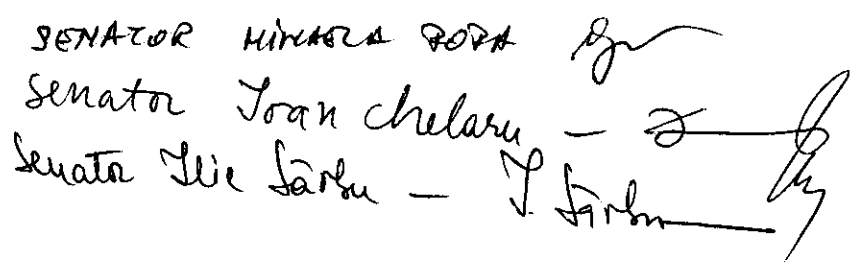 SENATOR MIHAELA POPA
Senator Ioan Chelaru —
Senator Ilie Sârbu — I. Sârbu